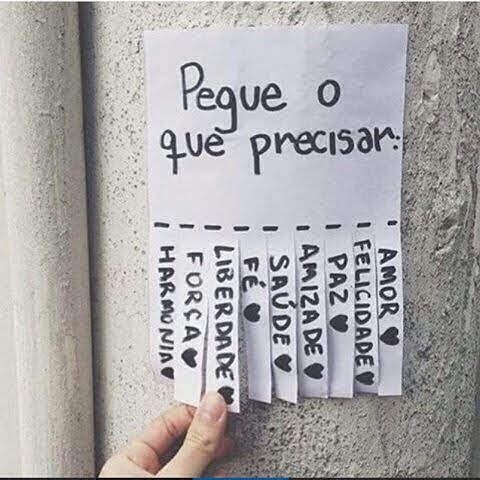 Pegue o
que precisar:
HARMONIA♥
FORÇA♥
LIBERDADE♥
FÉ♥
SAÚDE♥
AMIZADE♥
PAZ♥
FELICIDADE♥
AMOR♥